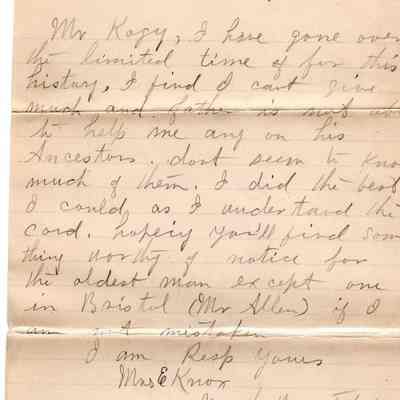 Mr Kagy, I have gone over
the limited time of for this
history, I find I cant give
much and father is not abl
to help me any on his
Ancestors. dont seem to kno
much of them. I did the best
I could, as I understand the
card. hopeing you'll find som
thing worthy of notice for
the oldest man except one
in Bristol (Mr Allen) if I
am not mistaken
I am Resp Yours
Mrs E Knox